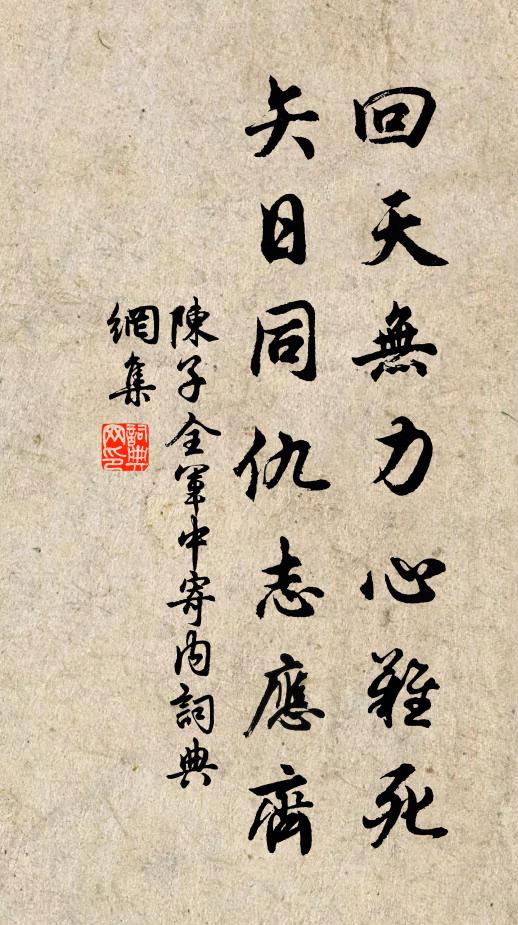 回天無力心難死
矢日同仇志應齊
陳子全軍中寄內詞典
網集
詞典
网印